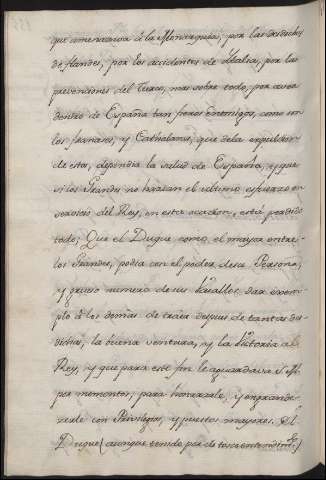 que amenazava a la Monarquia, por las desdichas
de flandes, por los accidentes de Ytalia, por las
prevenciones del Turco, mas sobre todo, por aver
dentro de España tan fieros enemigos, como son
los franceses, y Cathalanes, que dela expulsion
de estos, dependia la salud de España, y que
si los Grandes no hacian el ultimo esfuerzo en
servicio del Rey, en esta ocasion, está perdido
todo; Que el Duque como el mayor entre
los Grandes, podia con el poder desu Persona,
y grueso numero de sus Vasallos, dar exem-
plo á los demas de traer despues de tantas des-
dichas, la buena ventura, y la Victoria al
Rey, y que para este fin le aguardava S. M.
por momentos, para honrarle, y engrande-
zerle con Privilegios, y puestos mayores. El
Duque (aunque tenido por de tosco entendimto.)